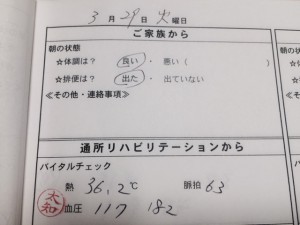 3月29日火曜日
ご家族から
朝の状態
☆体調は? 良い・悪い( )
☆排便は? 出た・出ていない
≪その他・連絡事項≫
通所リハビリテーションから
バイタルチェック
熱 36.2℃ 脈拍 63
大和
血圧 117 182